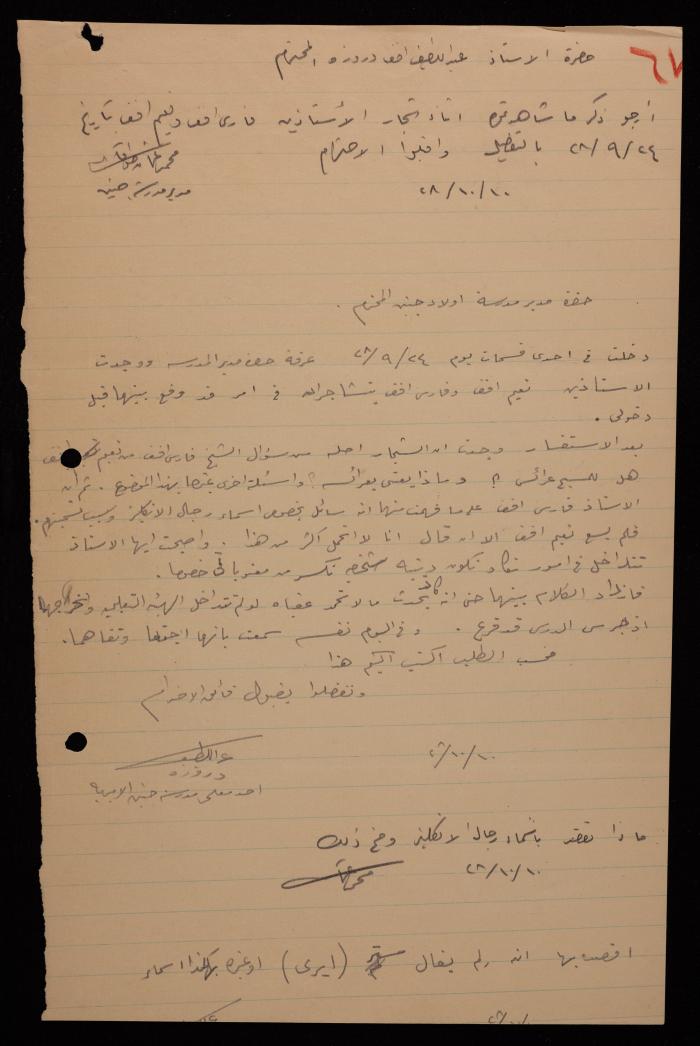 ٦٧
حضرة الاستاذ عبد اللطيف افندي دروزه المحترم
أرجو ذكر ما شاهدتموه اثناء شجار الأستاذين فارس افندي ونعيم افندي بتاريخ
٢٤/٩/٢٨ بالتفصيل واقبلوا الاحترام
٢٨/١٠/١٠
مدير مدرسة جنين
حضرة مدير مدرسة اولاد جنين المحترم .
دخلت في احدى فسحات يوم ٢٤/٩/٢٨ غرفة حضرة مدير المدرسه ووجدت
الاستاذين نعيم افندي وفارس افندي يتشاجران في امر قد وقع بينهما قبل
دخولي .
بعد الاستفسار وجدت ان الشجار اصله من سؤال الشيخ فارس افندي من نعيم افندي
هل للمسيح عرائس ؟؟ وماذا يعني بعرائسه ؟ واسئلة اخرى بهذا الموضوع . ثم ان
الاستاذ فارس افندي على ما فهمت منهما انه سائل بخصوص اسماء رجال الانكليز وسبب تسميتهم .
فلم يسع نعيم افندي الا ان قال انا لا اتحمل اكثر من هذا . واصبحت ايها الاستاذ
تتداخل في امور تكاد تكون دينيه شخصيه تكسر من معنوياتي خصوصا .
فازداد الكلام بينهما حتى انه كاد يحدث ما لا تحمد عقباه لو لم تتداخل الهيئة التعليميه
اذ جرس الدرس قد قرع . وفي اليوم نفسه سمعت بانهما اجتمعا وتفاهما .
فحسب الطلب اكتب اليكم هذا
وتفضلوا بقبول فائق الاحترام
٢٨/١٠/١٠
عبد اللطيف
دروزه
احد معلمي مدرسة جنين الاميريه
ماذا تقصد باسماء رجال الانكليز وضح ذلك
٢٨/١٠/١٠
اقصد بها انه لم يقال مستر (ايرى) او غيره بهكذا اسماء